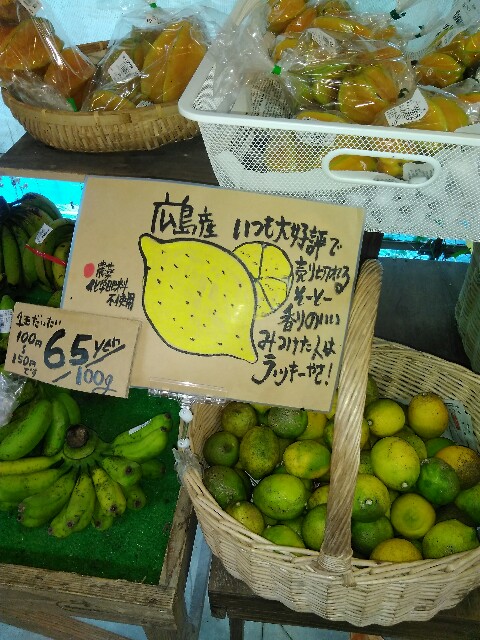 広島産
いつも大好評で
売り切れる
そーとー
香りのいい
みつけた人は
ラッキーやで!
農薬
化学肥料
不使用
1玉だいたい
100円
150円
です
65yen
/100g